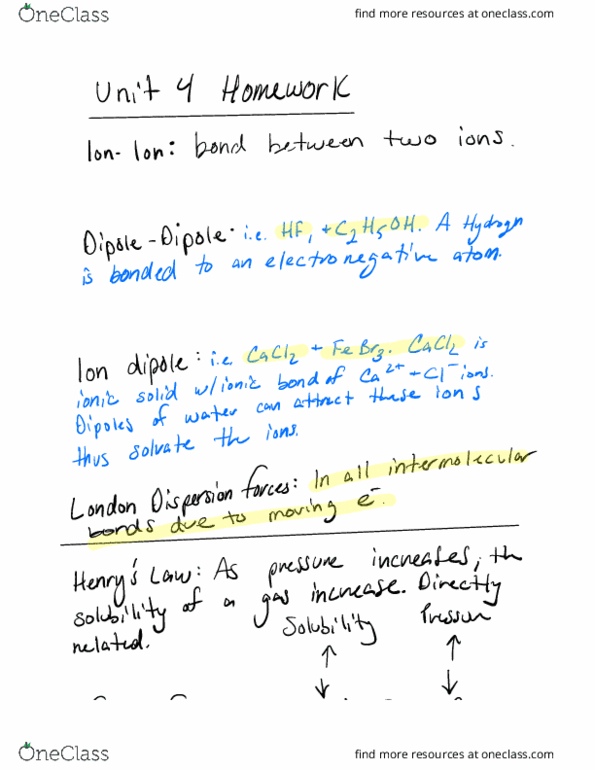 OneClass find more resources at oneclass.com
Unit 4 Homework
Ion-Ion: bond between two ions.
Dipole-Dipole: i.e. HF, + C2H5OH. A Hydrogn
is bonded to an electronegative atom.
Ion dipole: i.e. CaCl2 + FeBr3. CaCl2 is
ionic solid w/ionic bond of Ca2+ + Cl- ions.
Dipoles of water can attract these ions
thus solvate the ions.
London Dispersion forces: In all intermolecular
bonds due to moving e-.
Henry's Law: As pressure increases, the
solubility of a gas increase. Directly
related.
Solubility Pressure
OneClass find more resources at oneclass.com